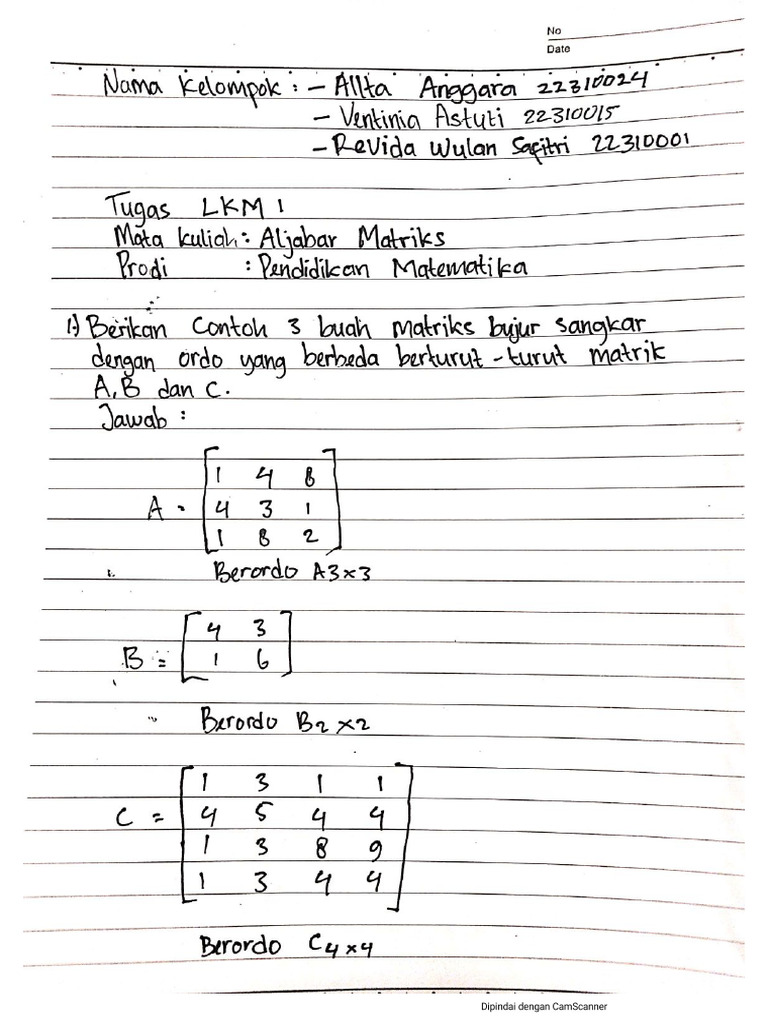 No
Date
Nama Kelompok : - Allta Anggara 22310024
- Ventinia Astuti 22310015
- Revida Wulan Safitri 22310001
Tugas LKM 1
Mata kuliah : Aljabar Matriks
Prodi : Pendidikan Matematika
1.) Berikan Contoh 3 buah matriks bujur sangkar
dengan ordo yang berbeda berturut-turut matrik
A, B dan C.
Jawab :
1 4 8
A = 4 3 1
1 8 2
Berordo A3×3
4 3
B = 1 6
Berordo B2×2
1 3 1 1
C = 4 5 4 4
1 3 8 9
1 3 4 4
Berordo C4×4
Dipindai dengan CamScanner